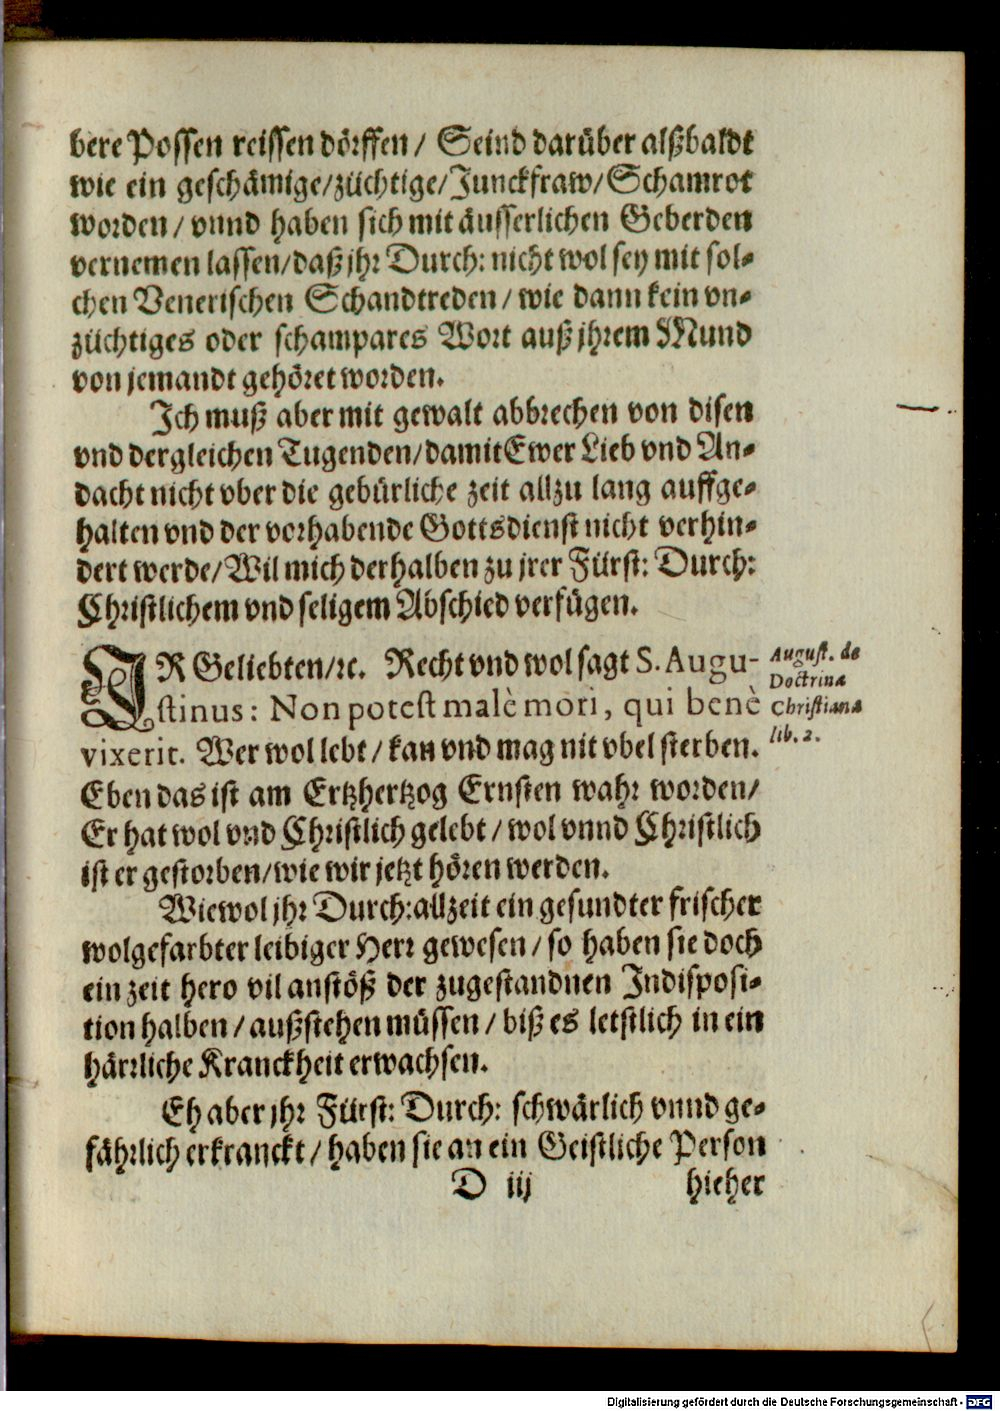 bere Possen reissen dörffen / Seind darüber alßbaldt
wie ein geschämige/züchtige/Junckfraw/Schamrot
worden / vnnd haben sich mit äusserlichen Geberden
vernemen lassen/daß jhr Durch: nicht wol sey mit sol-
chen Venerischen Schandtreden / wie dann kein vn-
züchtiges oder schampares Wort auß jhrem Mund
von jemandt gehöret worden.
Ich muß aber mit gewalt abbrechen von disen
vnd dergleichen Tugenden/damit Ewer Lieb vnd An-
dacht nicht vber die gebürliche zeit allzu lang auffge-
halten vnd der vorhabende Gottsdienst nicht verhin-
dert werde/Wil mich derhalben zu jrer Fürst: Durch:
Christlichem vnd seligem Abschied verfügen.
IR Geliebten/ꝛc. Recht vnd wol sagt S. Augu-
stinus: Non potest malè mori, qui benè
vixerit. Wer wol lebt / kan vnd mag nit vbel sterben.
August. de
Doctrina
Christiana
lib. 2.
Eben das ist am Ertzhertzog Ernsten wahr worden/
Er hat wol vnd Christlich gelebt / wol vnnd Christlich
ist er gestorben/wie wir jetzt hören werden.
Wiewol jhr Durch:allzeit ein gesundter frischer
wolgefarbter leibiger Herr gewesen / so haben sie doch
ein zeit hero vil anstöß der zugestandnen Indisposi-
tion halben / außstehen müssen / biß es letstlich in ein
härrliche Kranckheit erwachsen.
Eh aber jhr Fürst: Durch: schwärlich vnnd ge-
fährlich erkranckt / haben sie an ein Geistliche Person
D iij
hieher
Digitalisierung gefördert durch die Deutsche Forschungsgemeinschaft - DFG